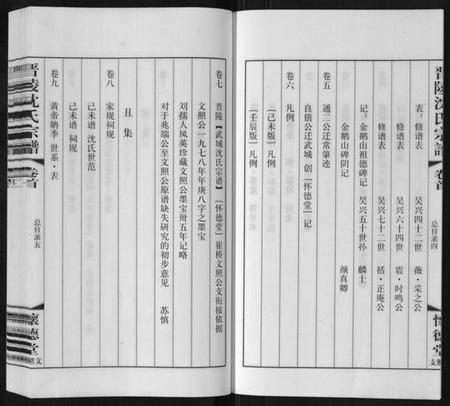 晋陵沈氏宗譜 卷首 总目录四 怀德堂 文照支
表：修谱表 吴兴四十二世 薇·采之公
修谱表 吴兴六十四世 震·时鸣公
修谱表 吴兴七十二世 括·正庵公
记：金鹅山祖德碑记 吴兴五十世孙 麟士
金鹅山碑阴记 颜真卿
卷五
通二公迁常肇迹
良僖公迁武城 创【怀德堂】记
卷六 凡例
【己未版】凡例
【壬辰版】凡例
卷七 晋陵【武城沈氏宗谱】【怀德堂】崔桥文照公支衔接依据
文照公一九七八年年庚八字之墨宝
刘孺人凤英珍藏文照公墨宝卅五年记略
对于兆瑞公至文照公原谱缺失研究的初步意见 苏慎
丑集
卷八 家规祠规
己未谱 沈氏世范
己未谱 祠规
卷九 黄帝聃季 世系·表
晋陵沈氏宗譜 卷首 总目录五 懷德堂 文